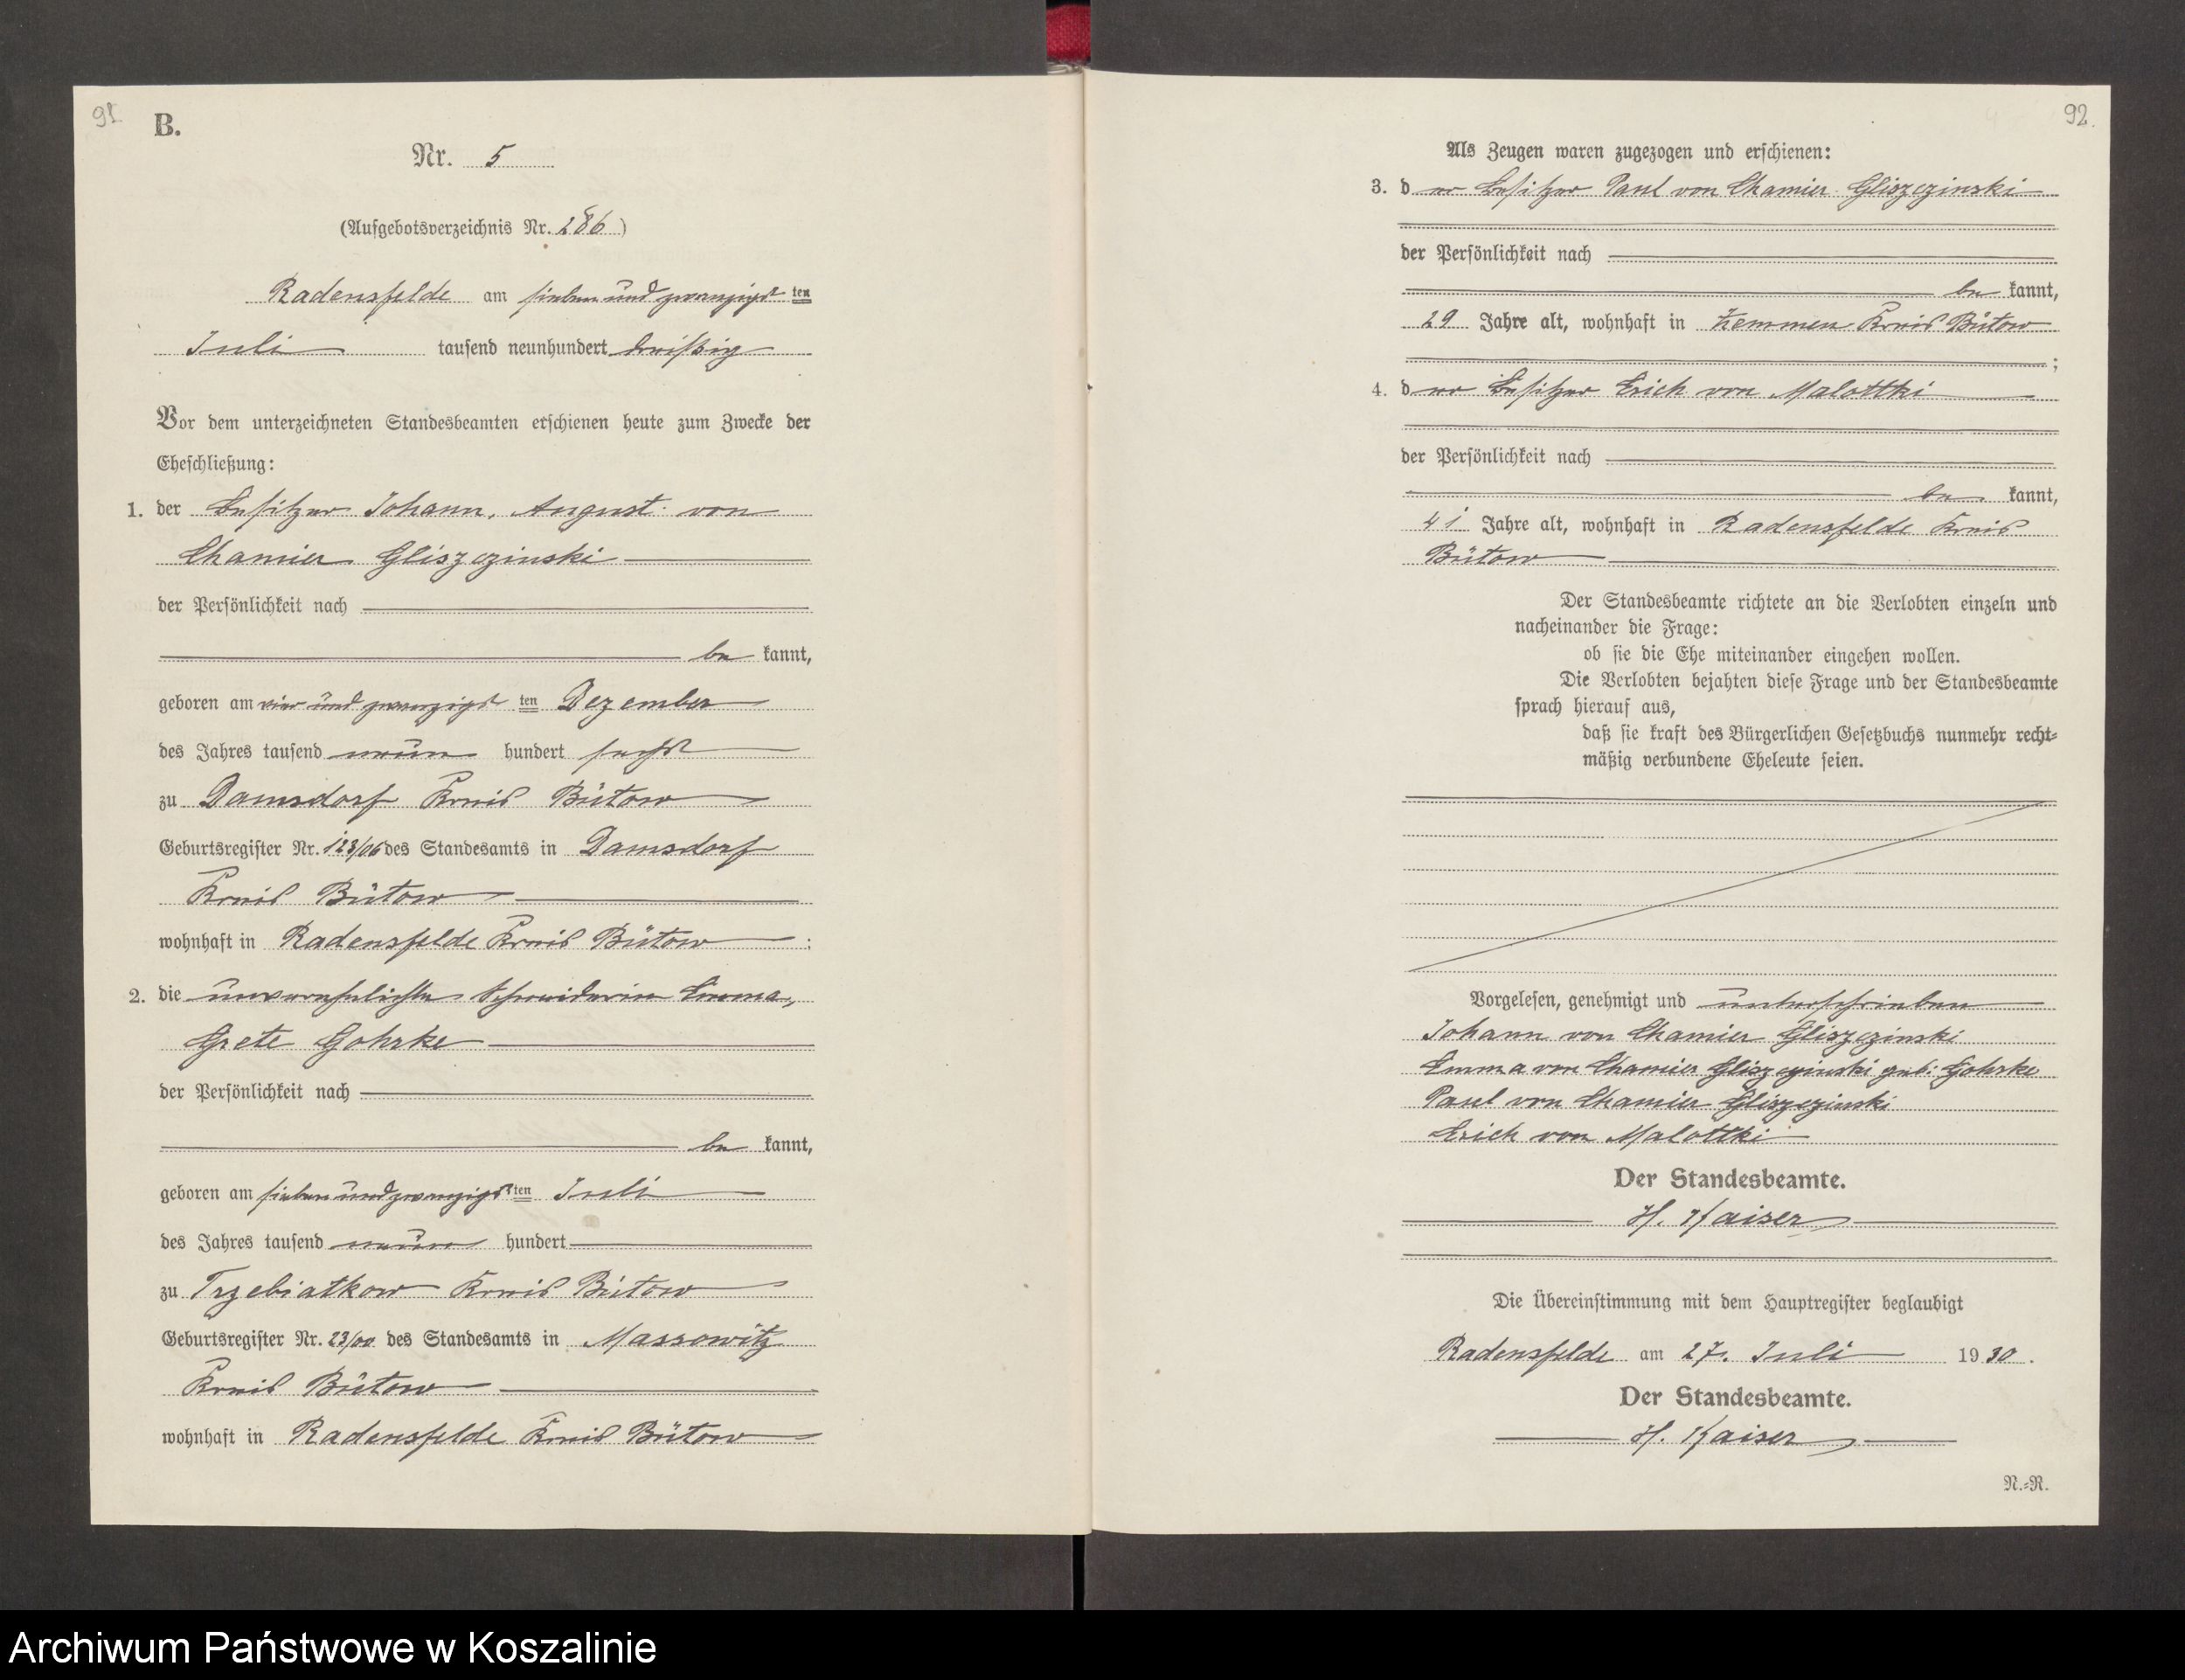 91
B.
Nr. 5
(Aufgebotsverzeichnis Nr. 286)
Radensfelde am sieben und zwanzigst ten
Juli tausend neunhundert dreißig
Vor dem unterzeichneten Standesbeamten erschienen heute zum Zwecke der
Eheschließung:
1. der Besitzer Johann, August von
Chamier Gliszczinski
der Persönlichkeit nach
be kannt,
geboren am vier und zwanzigst ten Dezember
des Jahres tausend neun hundert sechs
zu Damsdorf Kreis Bütow
Geburtsregister Nr. 123/06 des Standesamts in Damsdorf
Kreis Bütow
wohnhaft in Radensfelde Kreis Bütow ;
2. die unverehelichte Schneiderin Emma,
Grete Gohrke
der Persönlichkeit nach
be kannt,
geboren am sieben und zwanzigst ten Juli
des Jahres tausend neun hundert
zu Trzebiatkow Kreis Bütow
Geburtsregister Nr. 23/00 des Standesamts in Massowitz
Kreis Bütow
wohnhaft in Radensfelde Kreis Bütow
92
Als Zeugen waren zugezogen und erschienen:
3. d er Besitzer Paul von Chamier Gliszczinski
der Persönlichkeit nach
be kannt,
29 Jahre alt, wohnhaft in Zemmen Kreis Bütow
;
4. d er Besitzer Erich von Malottki
der Persönlichkeit nach
be kannt,
41 Jahre alt, wohnhaft in Radensfelde Kreis
Bütow
Der Standesbeamte richtete an die Verlobten einzeln und
nacheinander die Frage:
ob sie die Ehe miteinander eingehen wollen.
Die Verlobten bejahten diese Frage und der Standesbeamte
sprach hierauf aus,
daß sie kraft des Bürgerlichen Gesetzbuchs nunmehr recht-
mäßig verbundene Eheleute seien.
Vorgelesen, genehmigt und unterschrieben
Johann von Chamier Gliszczinski
Emma von Chamier Gliszczinski geb. Gohrke
Paul von Chamier Gliszczinski
Erich von Malottki
Der Standesbeamte.
H. Kaiser
Die Übereinstimmung mit dem Hauptregister beglaubigt
Radensfelde am 27. Juli 1930.
Der Standesbeamte.
H. Kaiser
N.-R.
Archiwum Państwowe w Koszalinie